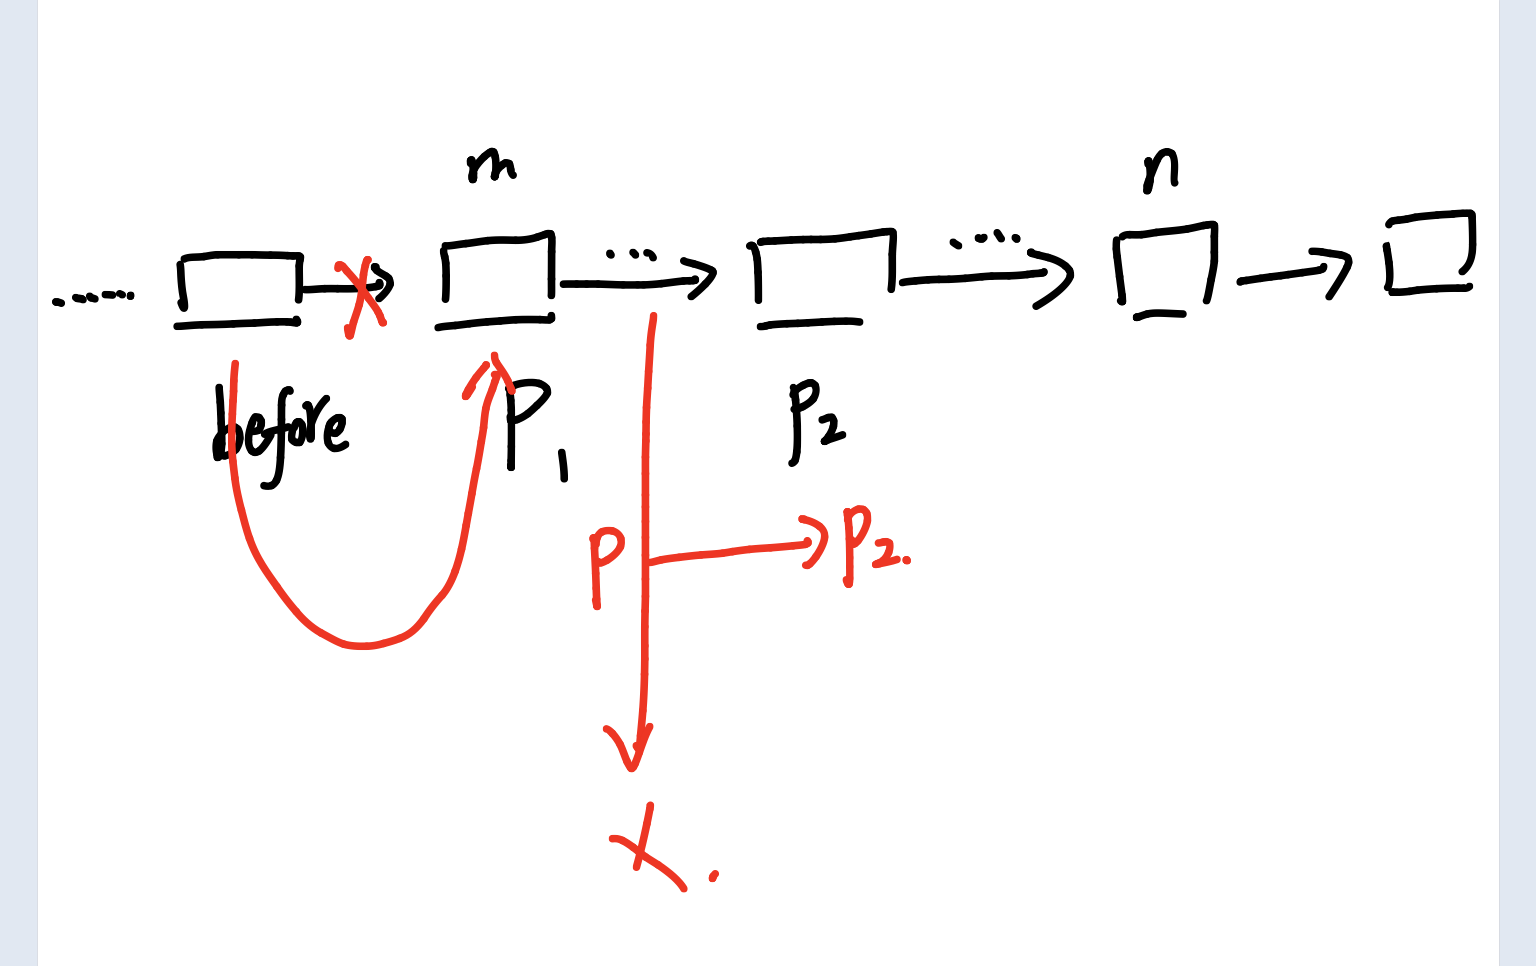 m n
...... ... ....
before P1 P2
P P2.
x.